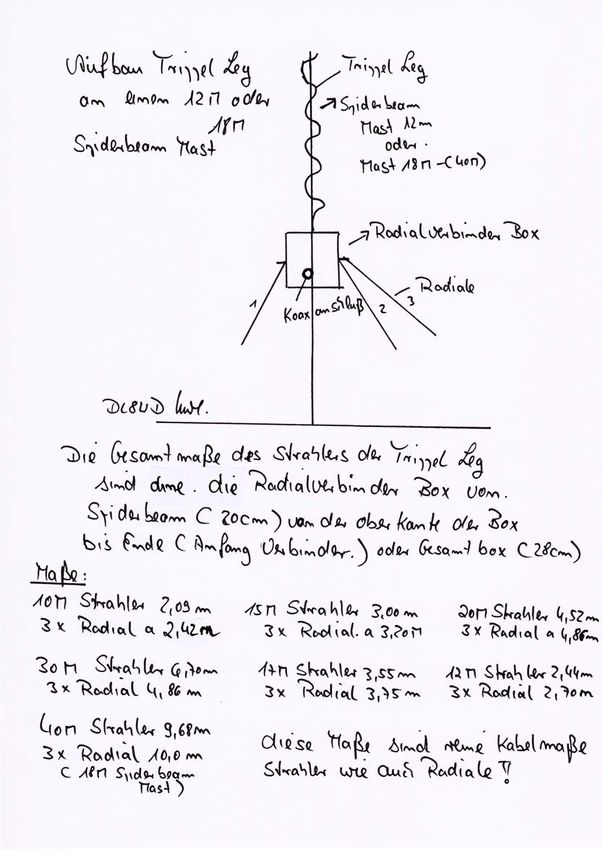 Aufbau Trippel Leg
an einem 12M oder
18M
Spiderbeam Mast
Trippel Leg
Spiderbeam
Mast 12m
oder.
Mast 18M-(40M)
Radialverbinder Box
Radiale
1
2
3
Koaxanschluß
DL8UD
Die Gesamtmaße des Strahlers der Trippel Leg
sind ohne. die Radialverbinder Box vom.
Spiderbeam (20cm) von der oberkante der Box
bis Ende (Anfang Verbinder.) oder Gesamt box (28cm)
Maße:
10M Strahler 2,09m
3x Radial a 2,42m
15M Strahler 3,00m
3x Radial. a 3,20M
20M Strahler 4,52m
3x Radial a 4,86m
30M Strahler 6,70m
3x Radial 4,86m
17M Strahler 3,55m
3x Radial 3,75m
12M Strahler 2,44m
3x Radial 2,70m
40M Strahler 9,68m
3x Radial 10,0m
(18M Spiderbeam
Mast)
diese Maße sind reine Kabelmaße
Strahler wie auch Radiale!!